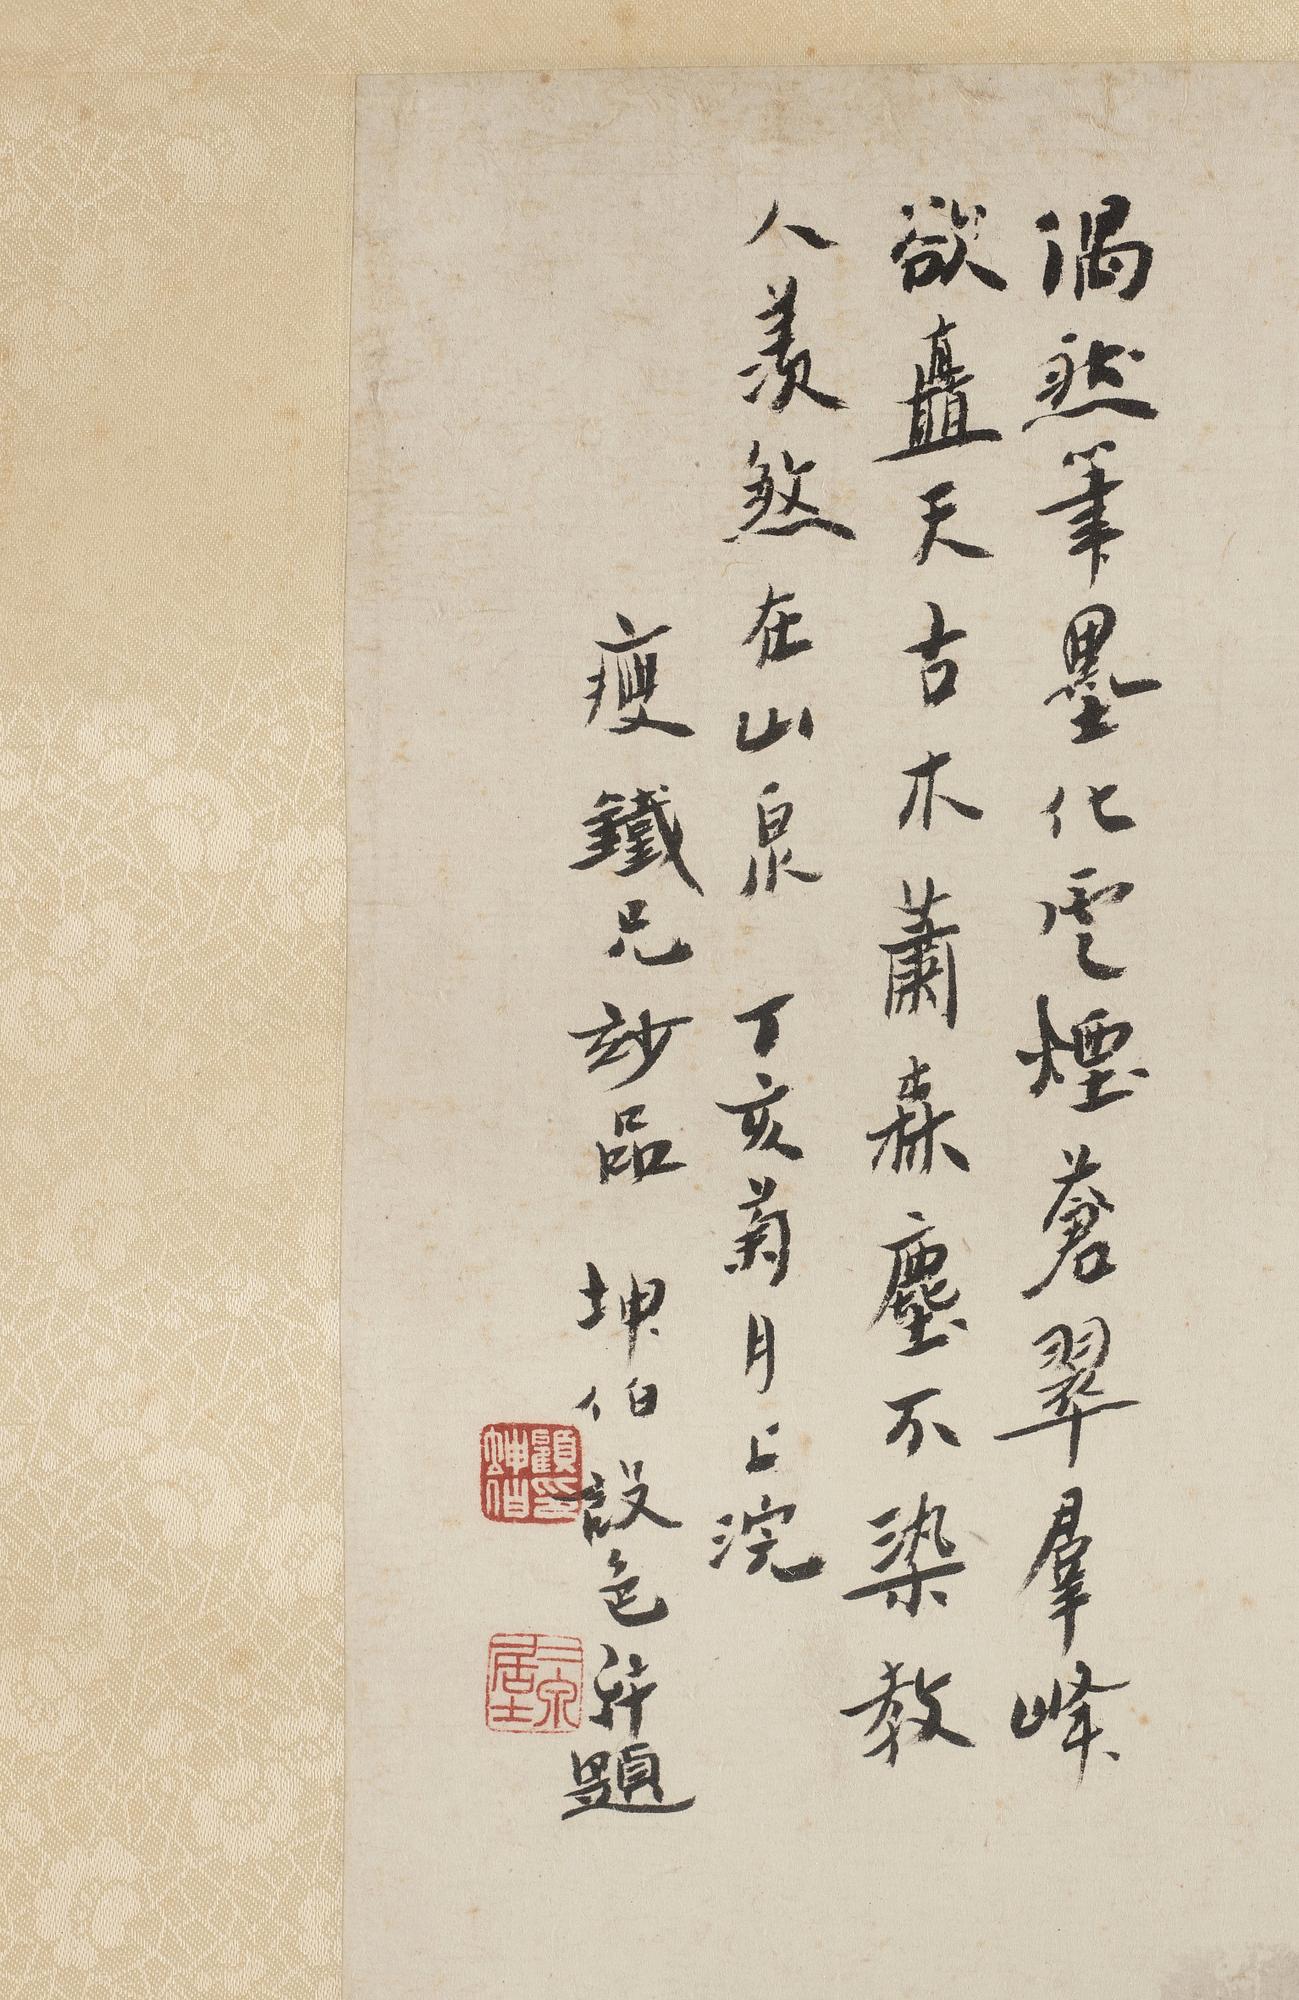 偶然筆墨化雲煙蒼翠羣峰
欲矗天古木蕭森塵不染教
人羨煞在山泉 丁亥菊月上浣
瘦鐵兄玅品 坤伯設色并題
顧坤伯印
二泉居士